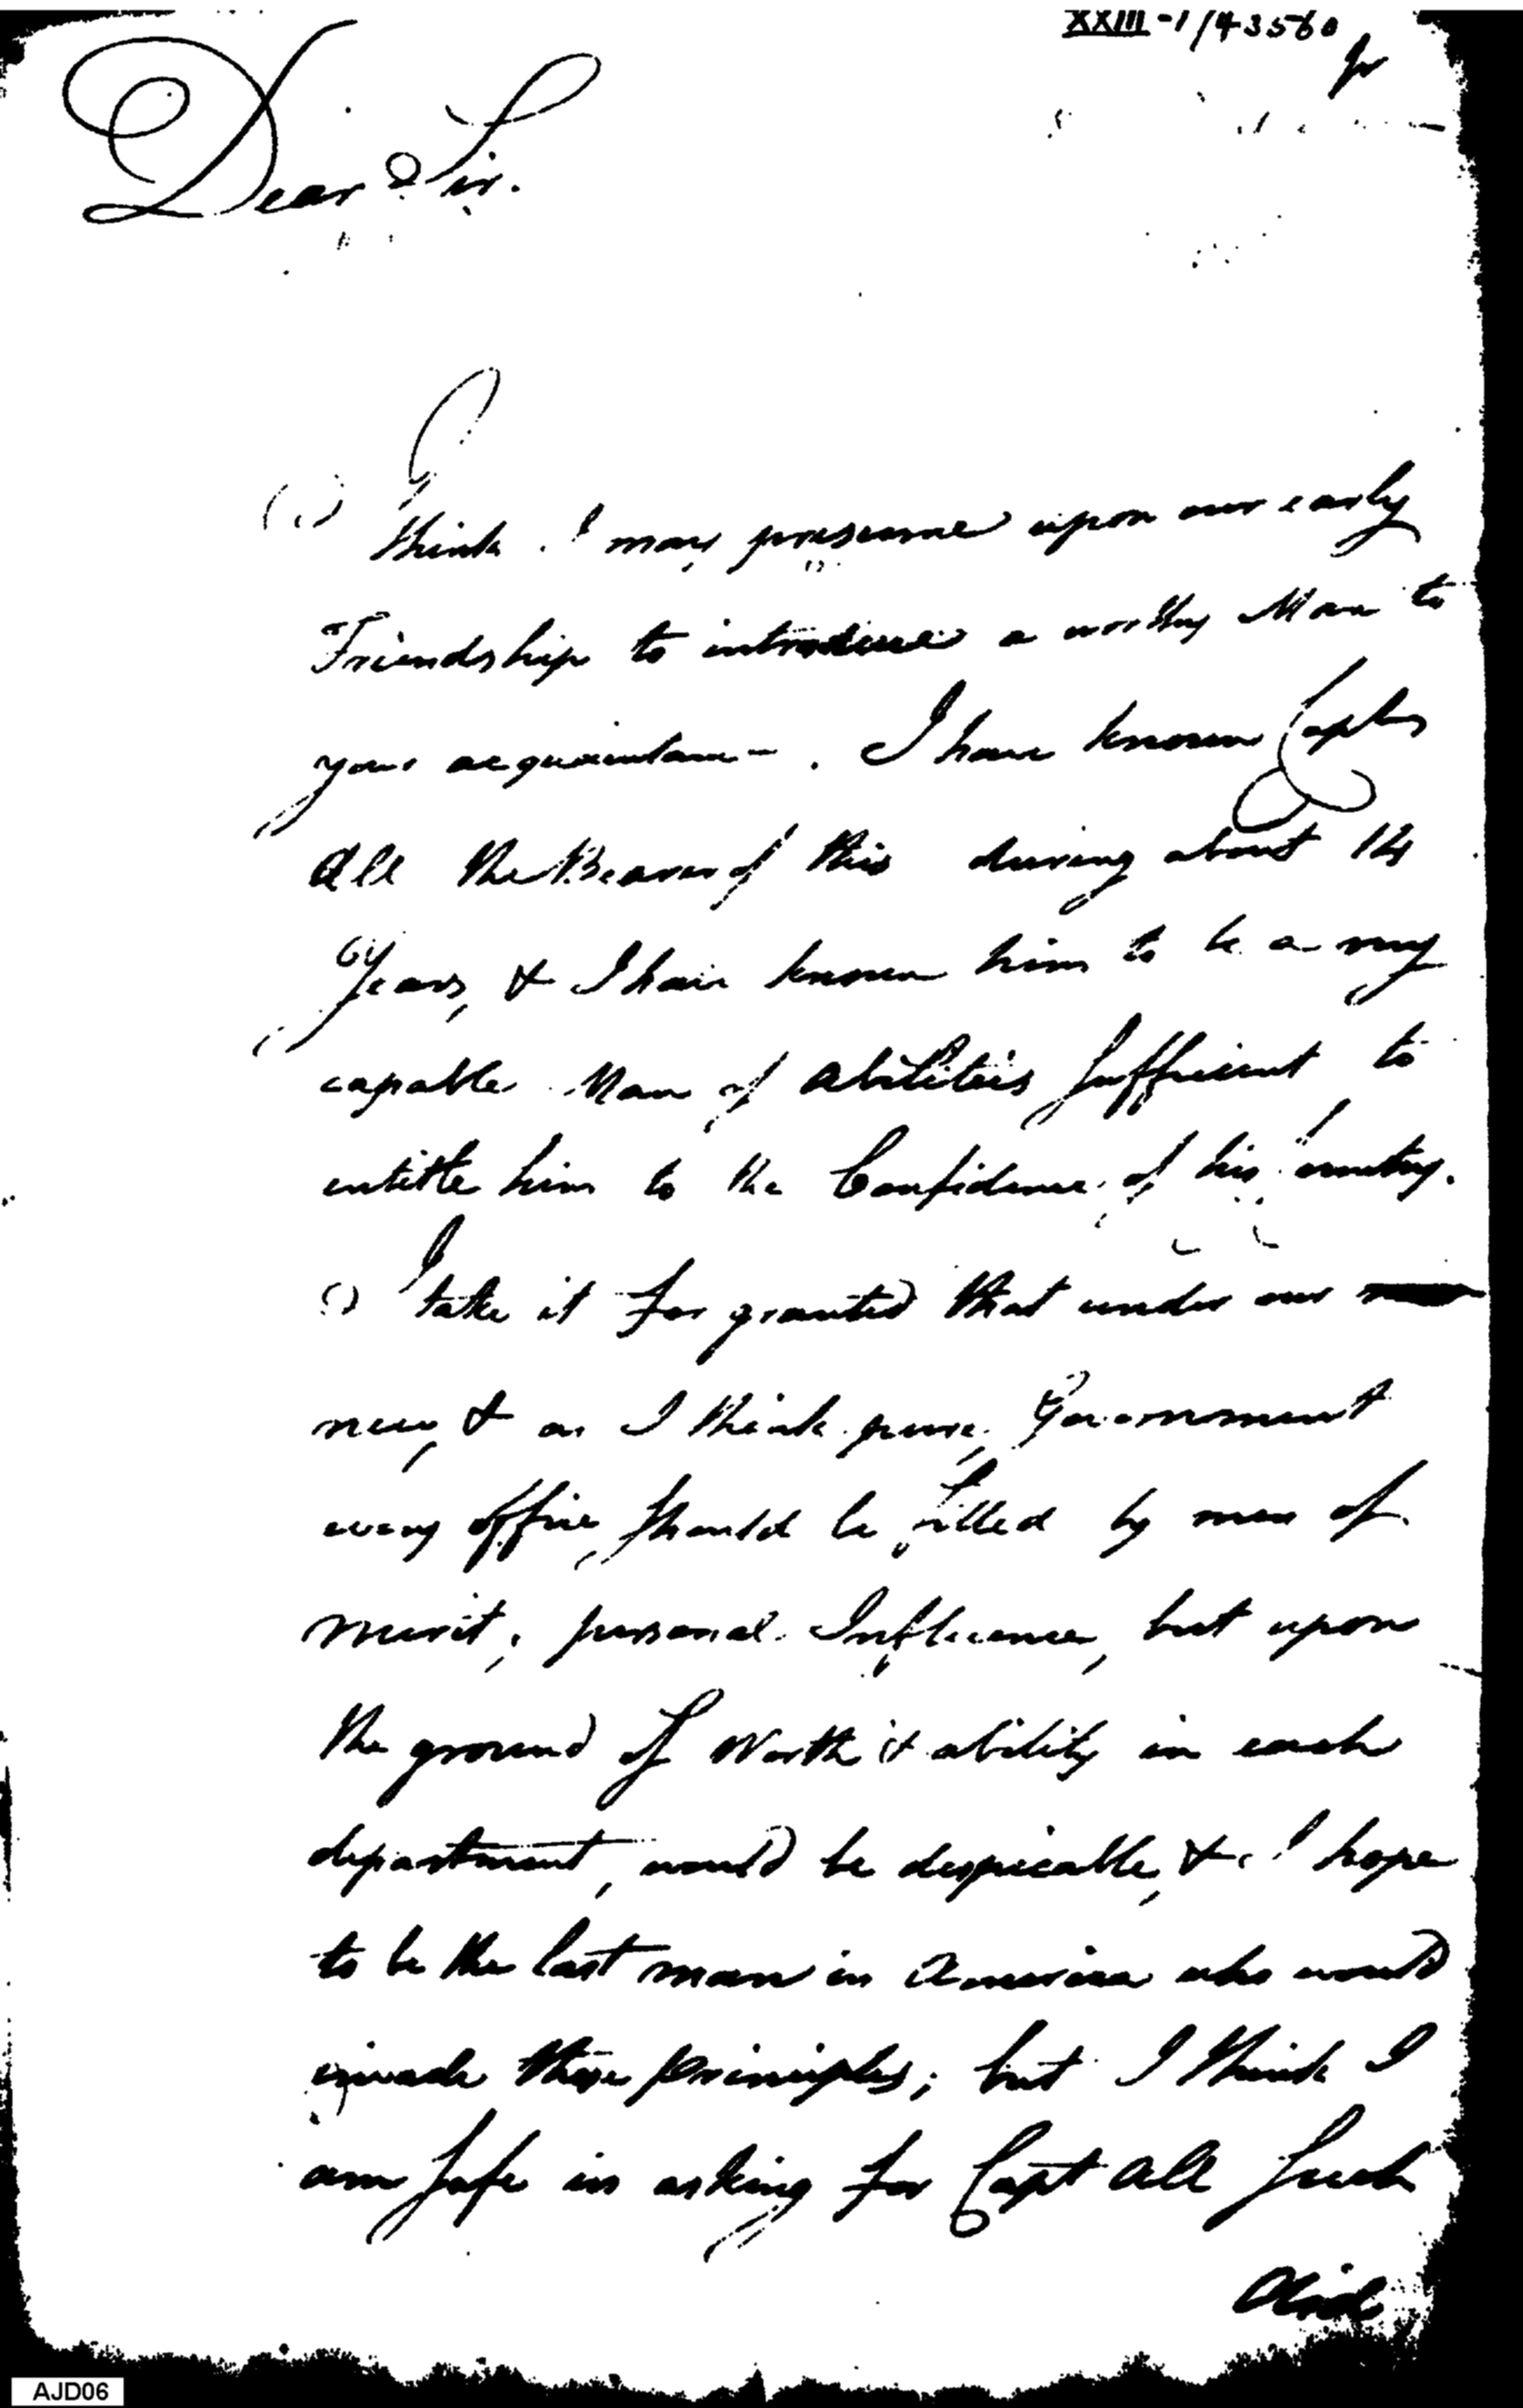 XXIII-1/43560
Dear Sir.
I
think I may presume upon our early
Friendship to introduce a worthy Man to
your acquaintance. I have known Captn
All the Bearer of this during about 14
Years, & I have known him to be a very
capable Man of abilities sufficient to
entitle him to the Confidence of his Country.
I take it for granted that under our
new, & as I think pure, Government
every office should be filled by men of
merit; personal Influence, but upon
the ground of Worth & ability in each
department, would be despicable, & I hope
to be the last man in America who would
invade those principles; but I think I
am safe in asking for Capt All such
Aid
AJD06